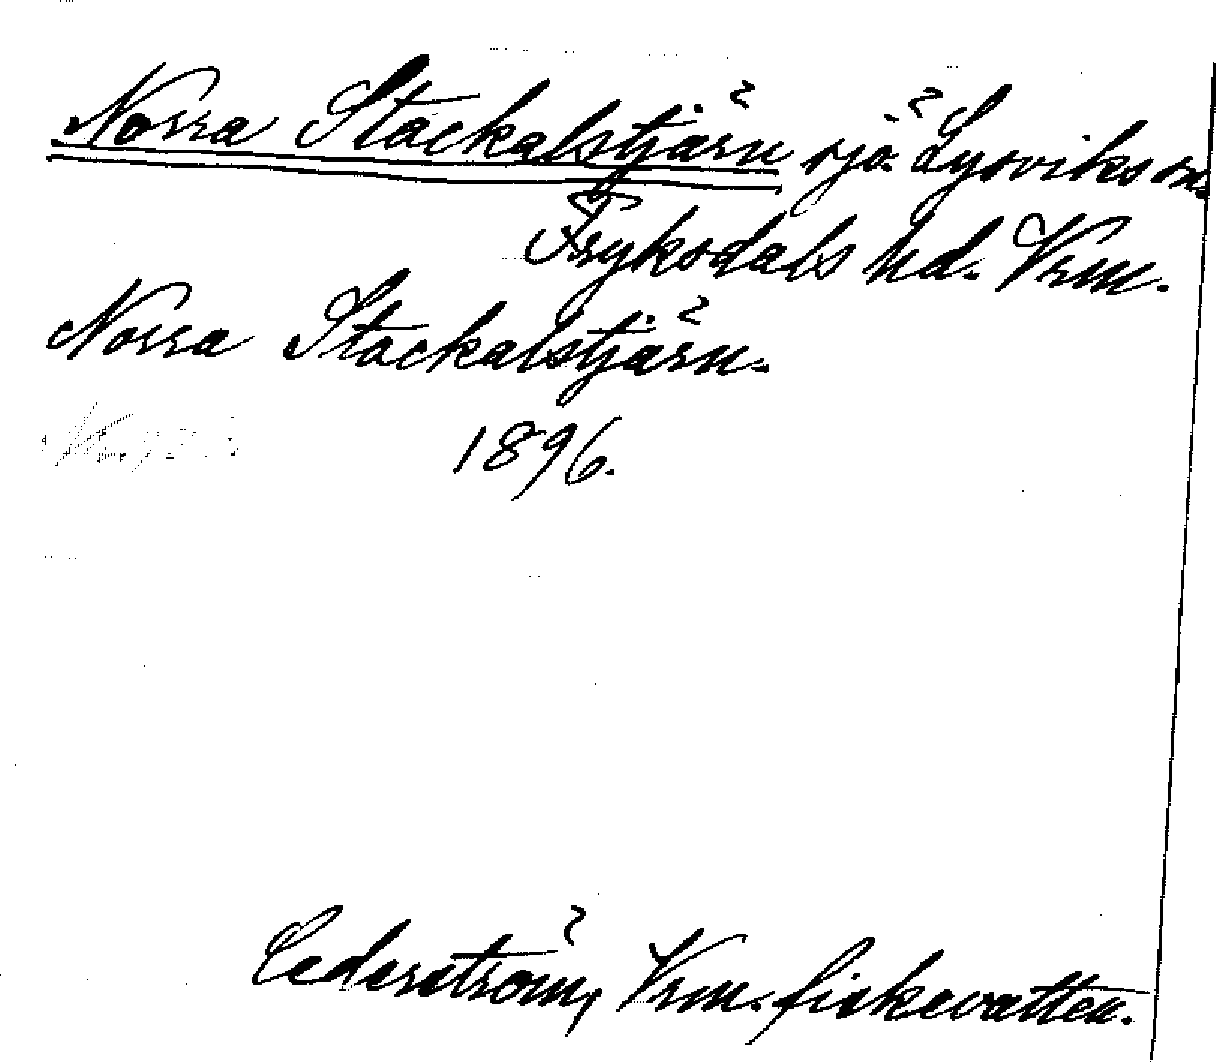 Norra Stackalstjärn sjö. Lysviks sn.
Fryksdals hd. Vrm.
Norra Stackalstjärn.
1896.
Cederström, Vrm. fiskevatten.